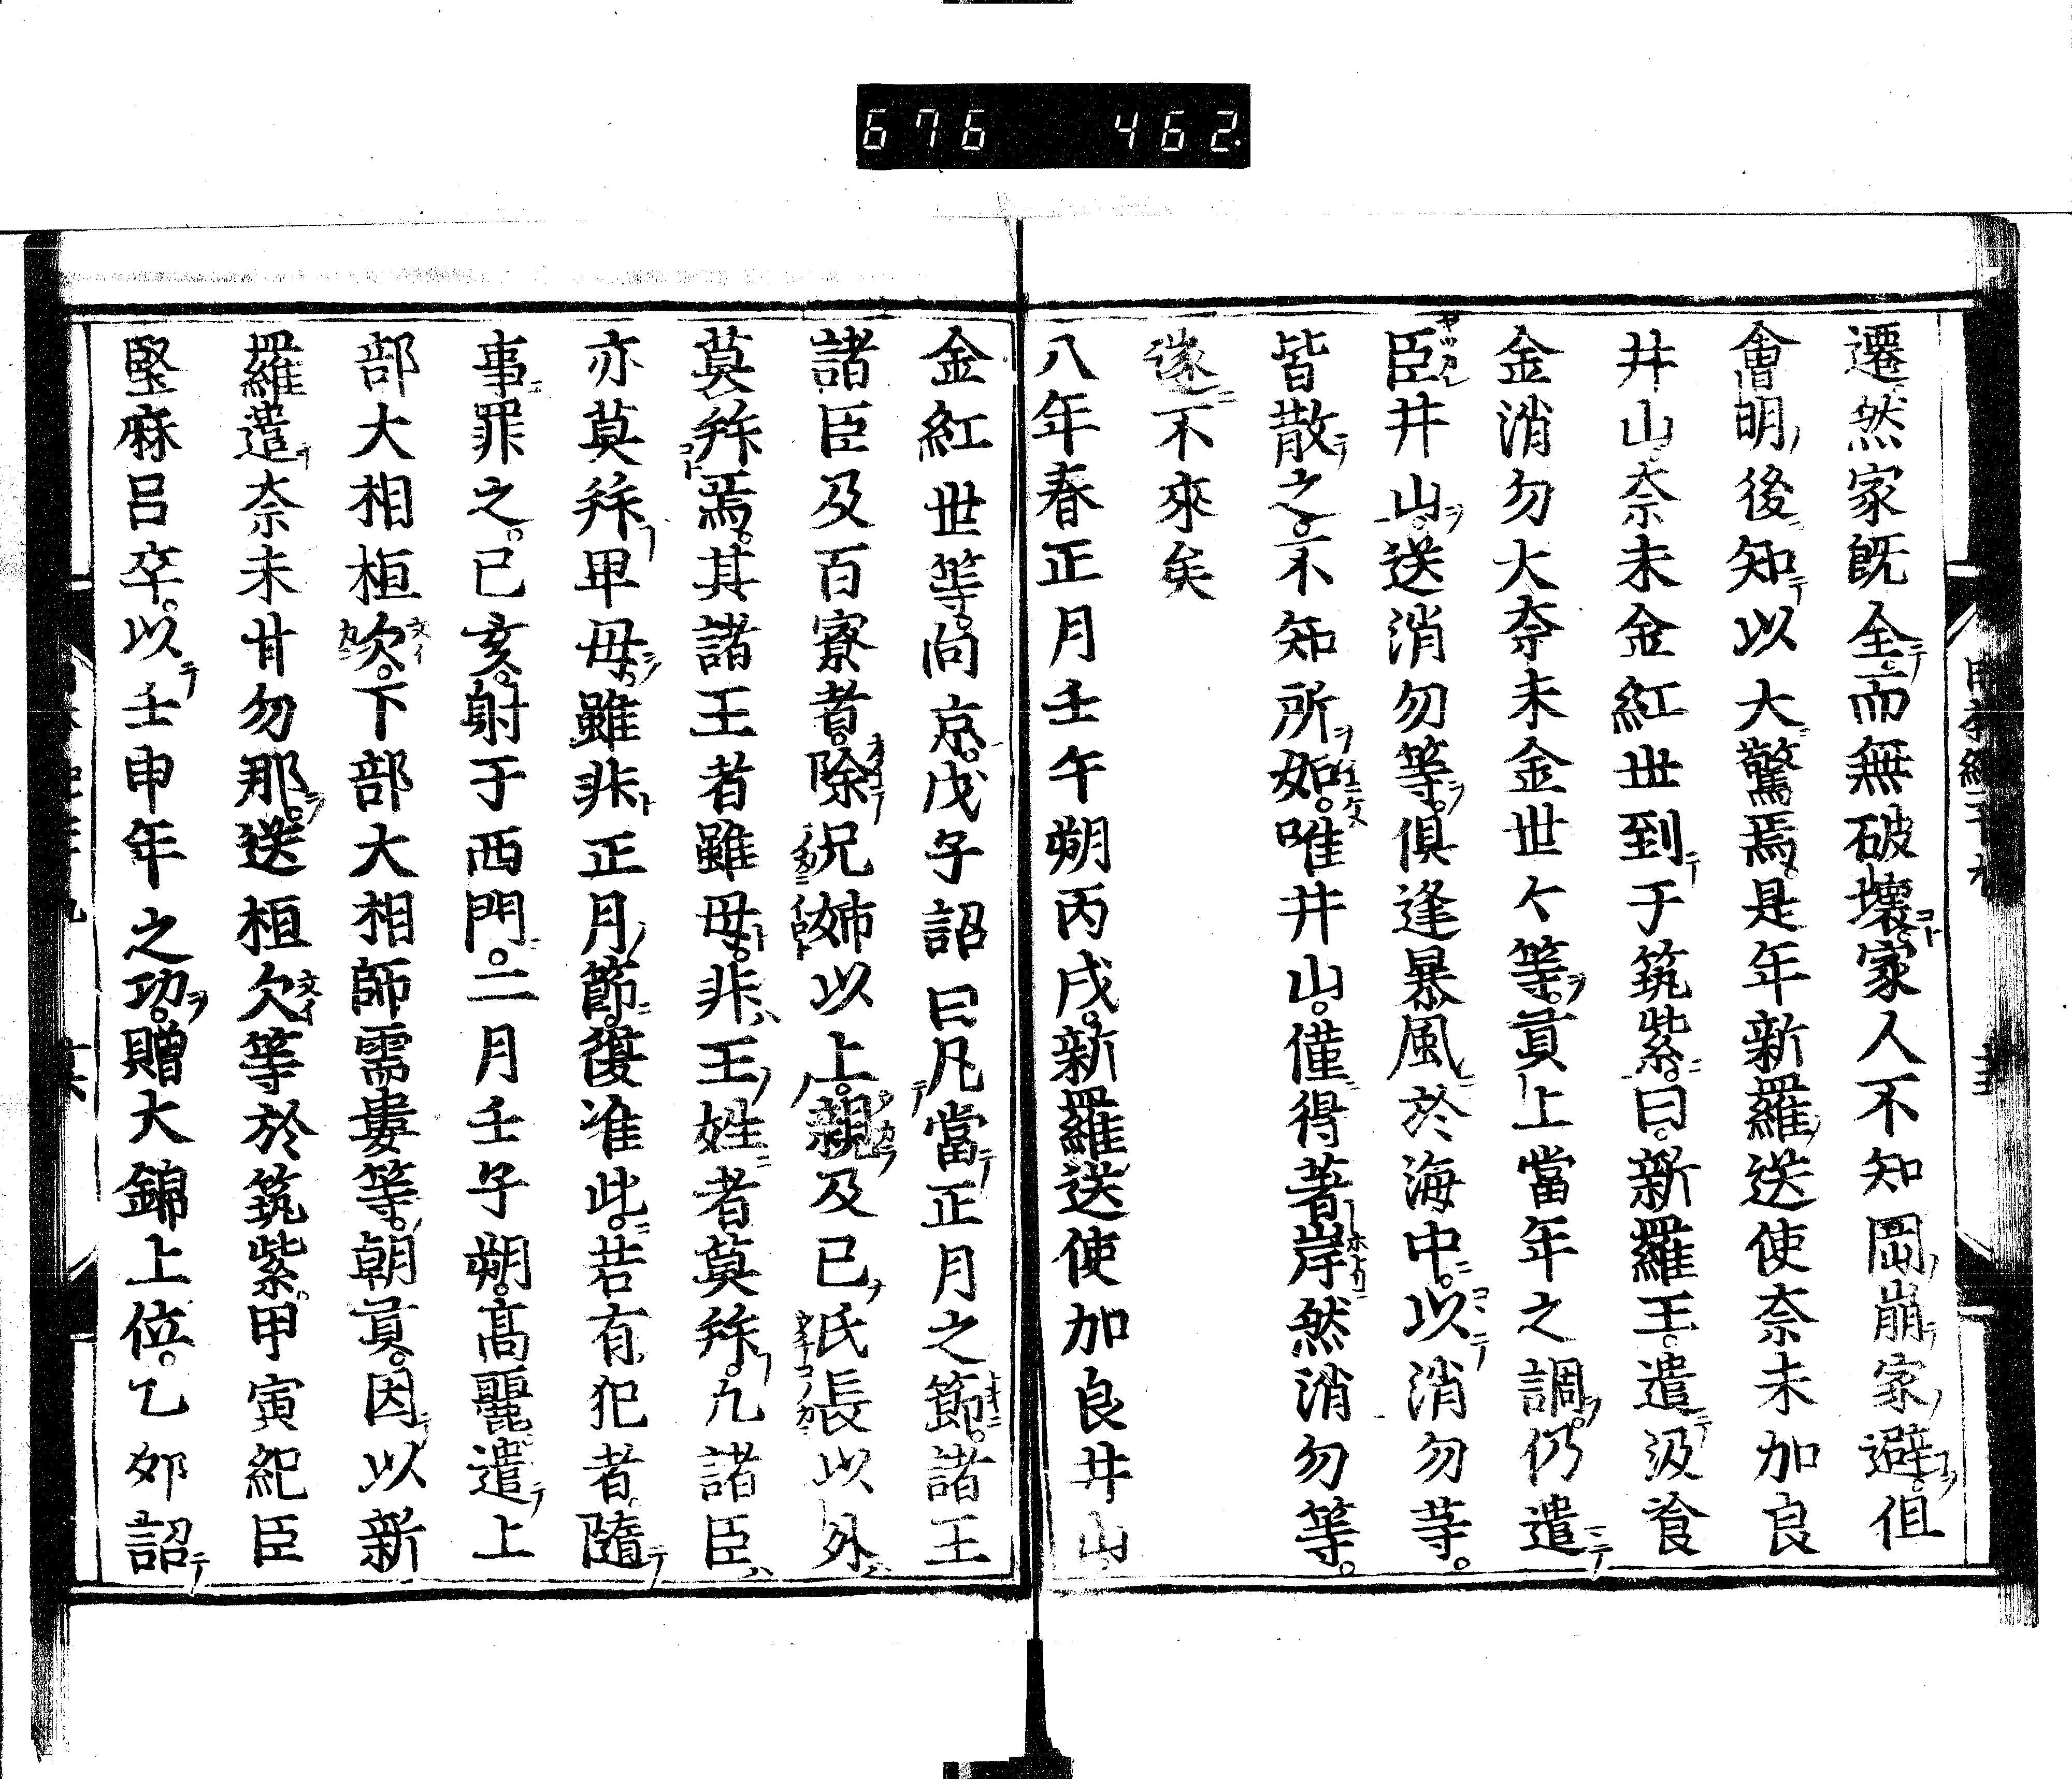 676 462
遷然家既全而無破壞家人不知岡崩家避但
會明後知以大驚焉是年新羅送使奈末加良
井山奈末金紅世到于筑紫曰新羅王遣汲飡
金消勿大奈末金世々等貢上當年之調仍遣
臣井山送消勿等俱逢暴風於海中以消勿等
皆散之不知所如唯井山僅得著岸然消勿等
遂不來矣
八年春正月壬午朔丙戌新羅送使加良井山
金紅世等向京戊子詔曰凡當正月之節諸王
諸臣及百寮者除兄姉以上親及己氏長以外
莫拜焉其諸王者雖母非王姓者莫拜凡諸臣
亦莫拜卑母雖非正月節復准此若有犯者隨
事罪之己亥射于西門二月壬子朔高麗遣上
部大相桓欠下部大相師需婁等朝貢因以新
羅遣奈末甘勿那送桓欠等於筑紫甲寅紀臣
堅麻呂卒以壬申年之功贈大錦上位乙卯詔